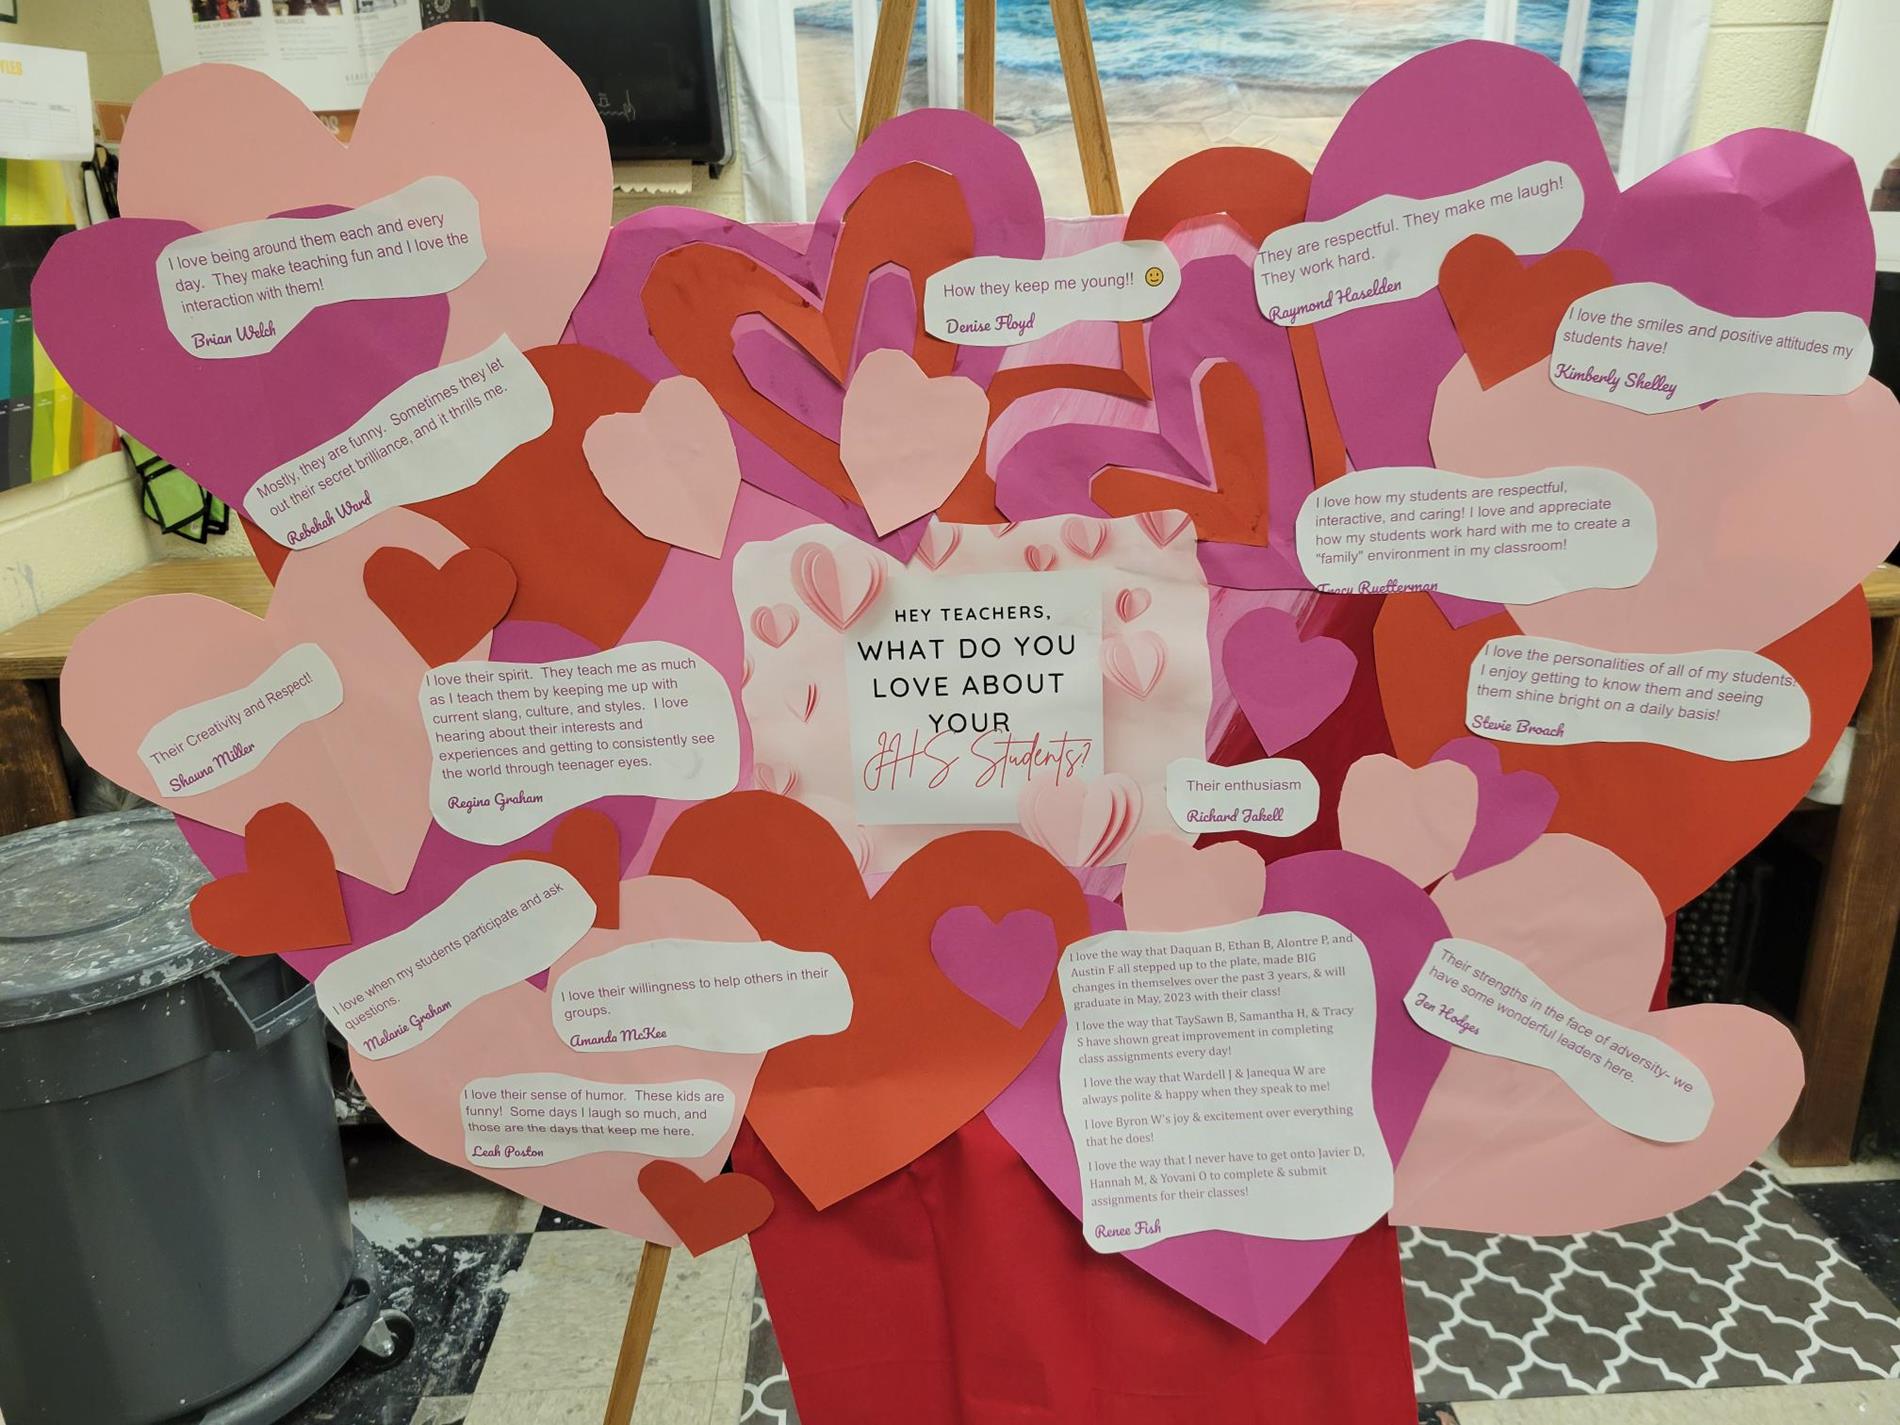 HEY TEACHERS,
WHAT DO YOU
LOVE ABOUT
YOUR
JHS Students?
I love being around them each and every
day. They make teaching fun and I love the
interaction with them!
Brian Welch
How they keep me young!! 🙂
Denise Floyd
They are respectful. They make me laugh!
They work hard.
Raymond Haselden
I love the smiles and positive attitudes my
students have!
Kimberly Shelley
Mostly, they are funy. Sometimes they let
out their secret brilliance, and it thrills me.
Rebekah Ward
I love how my students are respectful,
interactive, and caring! I love and appreciate
how my students work hard with me to create a
"family" environment in my classroom!
Tracy Ruetterman
Their Creativity and Respect!
Shauna Miller
I love their spirit. They teach me as much
as I teach them by keeping me up with
current slang, culture, and styles. I love
hearing about their interests and
experiences and getting to consistently see
the world through teenager eyes.
Regina Graham
I love the personalities of all of my students!
I enjoy getting to know them and seeing
them shine bright on a daily basis!
Stevie Broach
Their enthusiasm
Richard Jakell
I love when my students participate and ask
questions.
Melanie Graham
I love their willingness to help others in their
groups.
Amanda McKee
I love their sense of humor. These kids are
funny! Some days I laugh so much, and
those are the days that keep me here.
Leah Poston
I love the way that Daquan B, Ethan B, Alontre P, and
Austin F all stepped up to the plate, made BIG
changes in themselves over the past 3 years, & will
graduate in May, 2023 with their class!
I love the way that TaySawn B, Samantha H, & Tracy
S have shown great improvement in completing
class assignments every day!
I love the way that Wardell J & Janequa W are
always polite & happy when they speak to me!
I love Byron W's joy & excitement over everything
that he does!
I love the way that I never have to get onto Javier D,
Hannah M, & Yovani O to complete & submit
assignments for their classes!
Renee Fish
Their strengths in the face of adversity- we
have some wonderful leaders here.
Jen Hodges